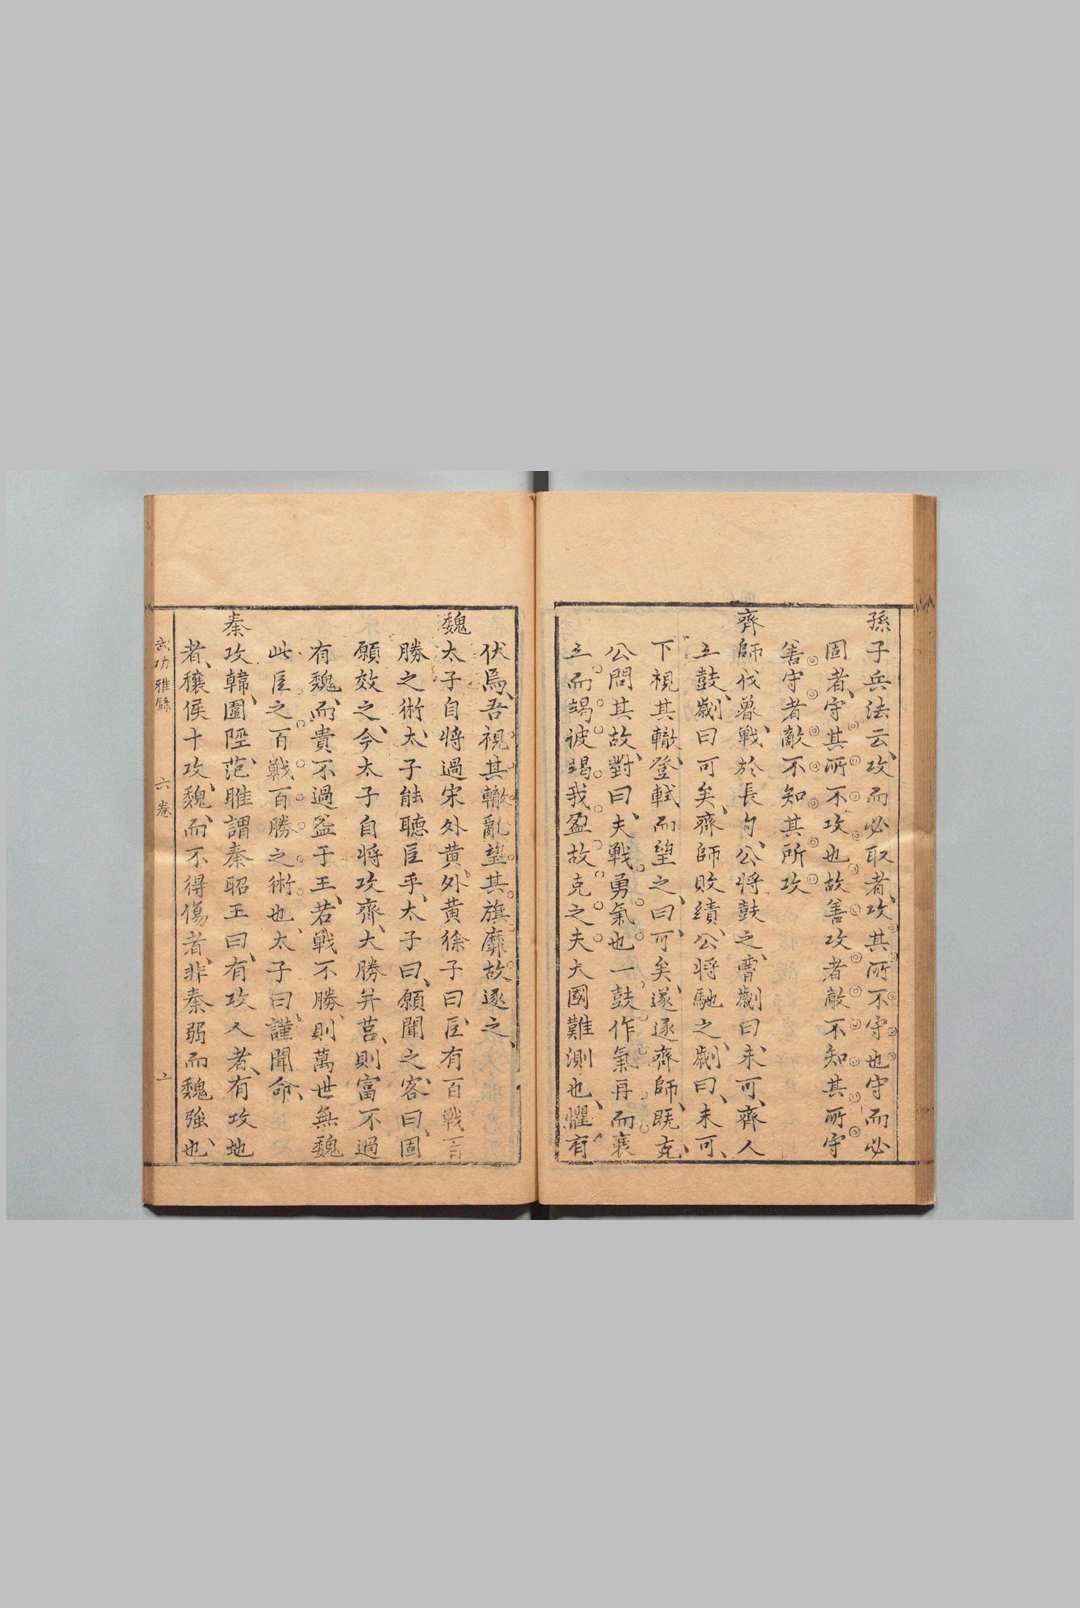 孫子兵法云、攻而必取者、攻其所不守也守而必
固者、守其所不攻也故善攻者敵不知其所守
善守者敵不知其所攻
齊師伐魯、戰於長勺、公將鼓之、曹劌曰未可、齊人
三鼓、劌曰可矣、齊師敗績、公將馳之、劌曰、未可、
下視其轍、登軾而望之、曰可矣、遂逐齊師、既克、
公問其故、對曰、夫戰勇氣也一鼓作氣再而衰
三而竭彼竭我盈故克之夫大國難測也、懼有
伏焉、吾視其轍亂望其旗靡故逐之、
魏太子自將過宋外黄、外黄徐子曰、臣有百戰百
勝之術、太子能聽臣乎、太子曰、願聞之、客曰、固
願效之、今太子自將攻齊、大勝并莒、則富不過
有魏、而貴不過益于王、若戰不勝、則萬世無魏
此臣之百戰百勝之術也、太子曰、謹聞命、
秦攻韓、圍陘、范雎謂秦昭王曰、有攻人者、有攻地
者、穰侯十攻魏、而不得傷者、非秦弱而魏強也、
武功雅錄　六卷　上